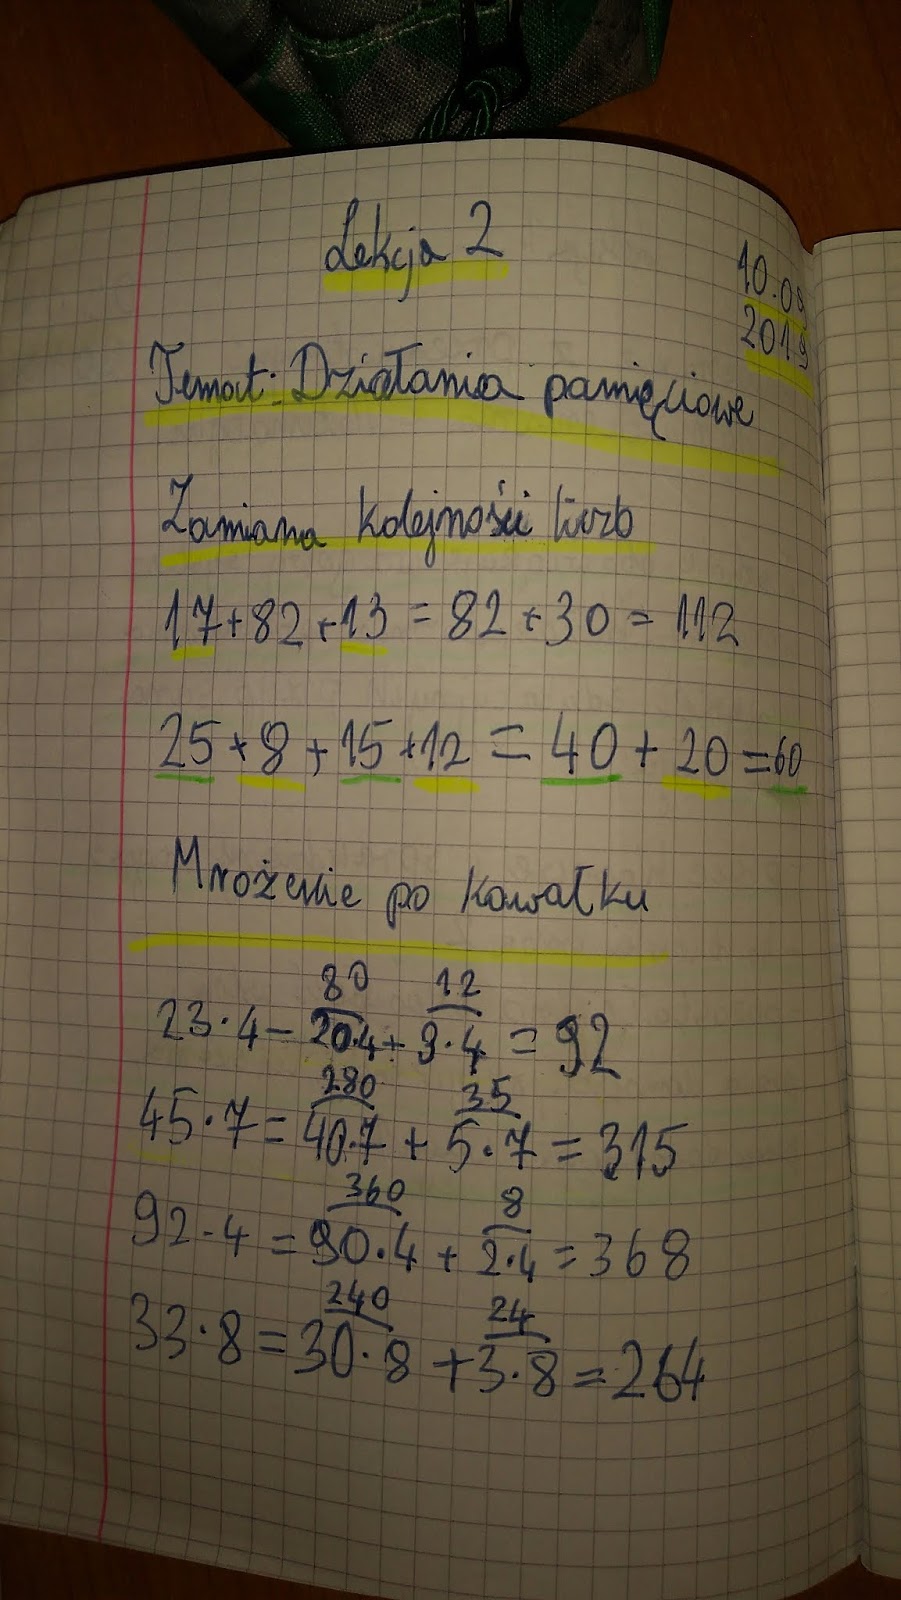 Lekcja 2
10.09
2019
Temat: Działania pamięciowe
Zamiana kolejności liczb
17+82+13=82+30=112
25+8+15+12=40+20=60
Mnożenie po kawałku
80 12
23·4=20·4+3·4=92
280 35
45·7=40·7+5·7=315
360 8
92·4=90·4+2·4=368
240 24
33·8=30·8+3·8=264